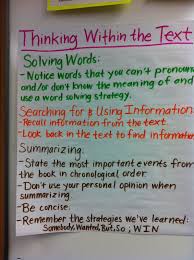 Thinking Within the Text
Solving Words:
-Notice words that you can't pronoun
and/or don't know the meaning of and
use a word solving strategy.
Searching for & Using Information
-Recall information from the text.
-Look back in the text to find information
Summarizing:
-State the most important events from
the book in chronological order.
-Don't use your personal opinion when
summarizing.
-Be concise.
-Remember the strategies we've learned:
Somebody, Wanted, But, So ; WIN